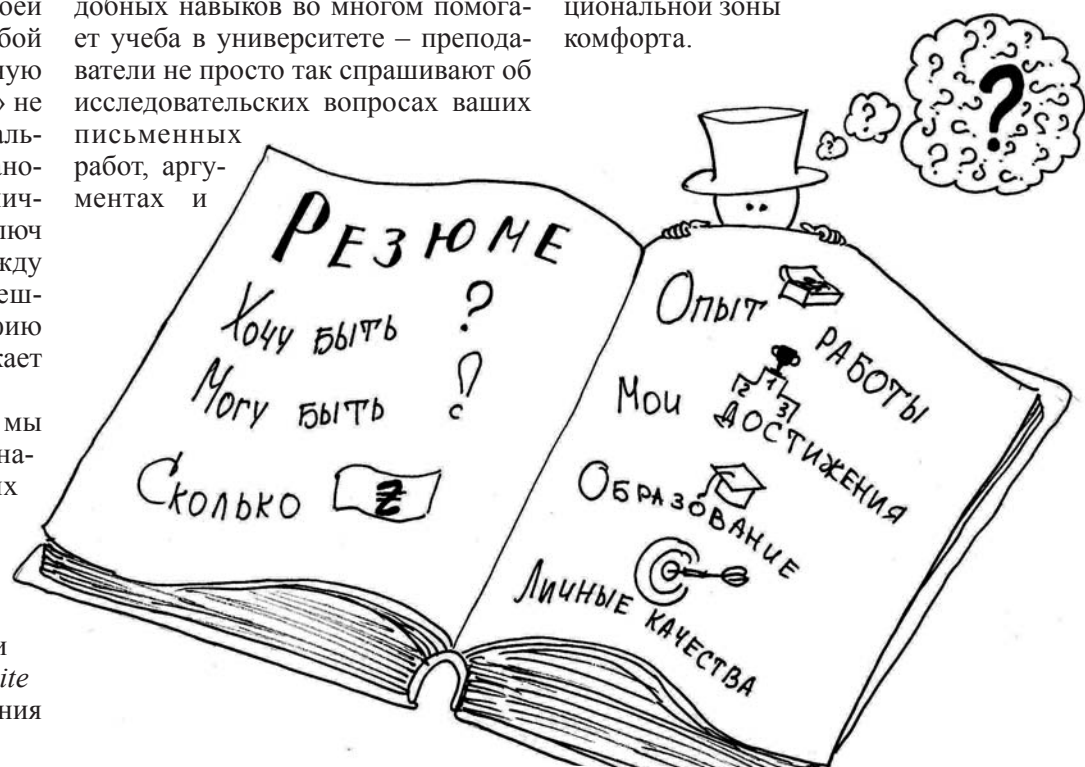 оей
бой
ную
» не
аль-
ано-
нич-
люч
жду
еш-
кает
мы
на-
и
ite
ния
добных навыков во многом помога-
ет учеба в университете – препода-
ватели не просто так спрашивают об
исследовательских вопросах ваших
письменных
работ, аргу-
ментах и
циональной зоны
комфорта.
РЕЗЮМЕ
Хочу быть ?
Могу быть ?
Сколько
Опыт работы
Мои достижения
2 1 3
Образование
Личные качества
?
?
?